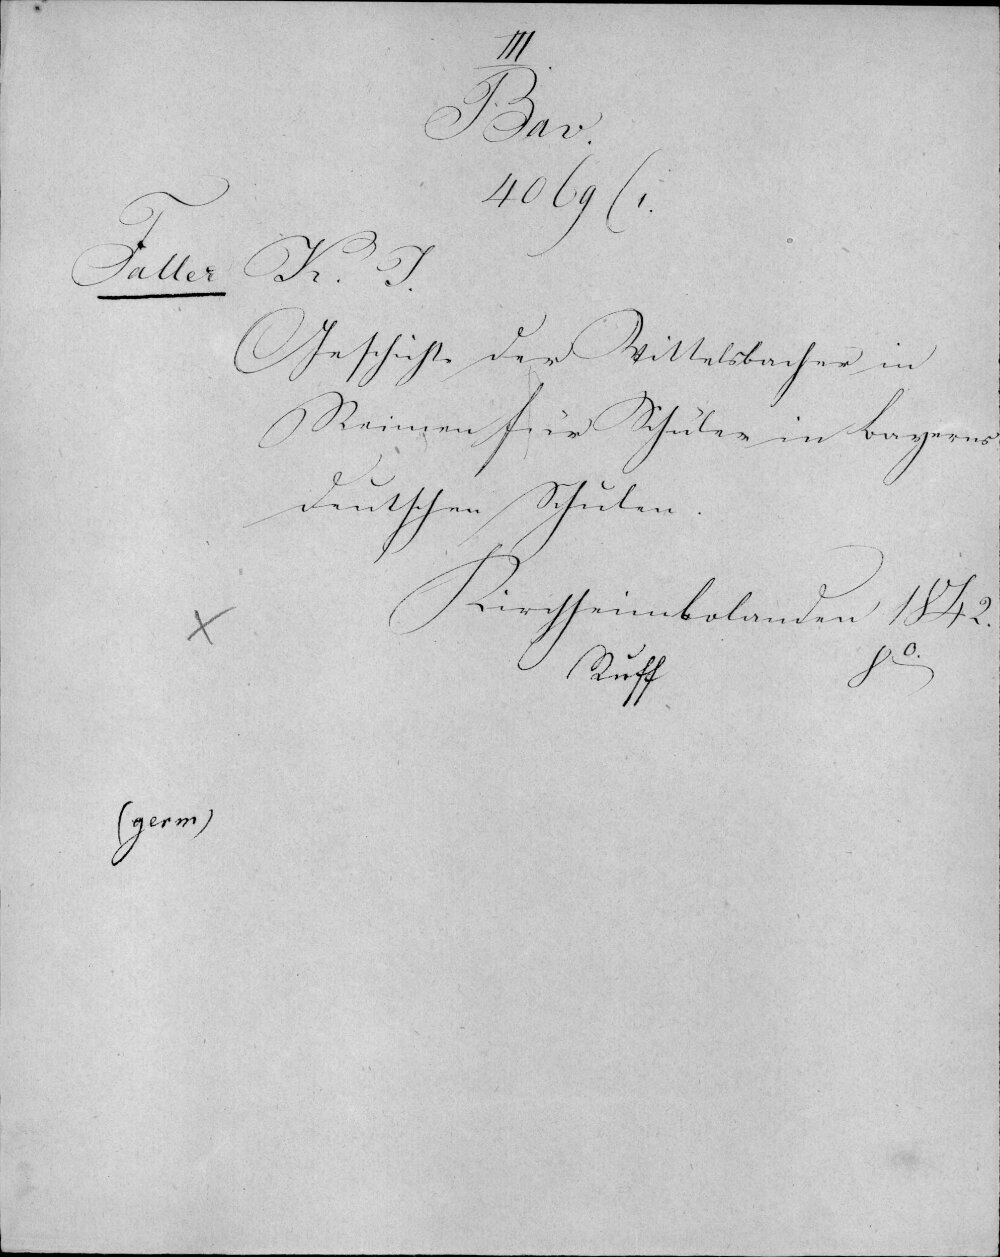 III
Bav.
4069 (1.
Faller K. J.
Geschichte der Wittelsbacher in
Reimen für Schüler in bayerns
deutschen Schulen.
Kirchheimbolanden 1842.
Ruff 8o.
(germ)